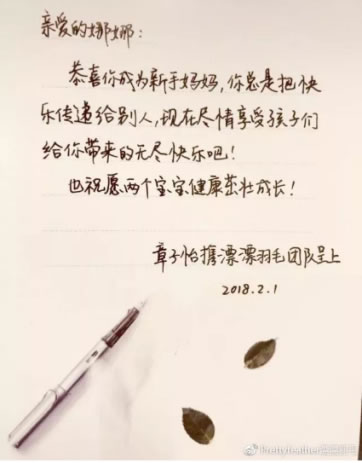 亲爱的娜娜:
恭喜你成为新手妈妈,你总是把快
乐传递给别人,现在尽情享受孩子们
给你带来的无尽快乐吧!
也祝愿两个宝宝健康茁壮成长!
章子怡携漂漂羽毛团队呈上
2018.2.1
@Prettyfeather